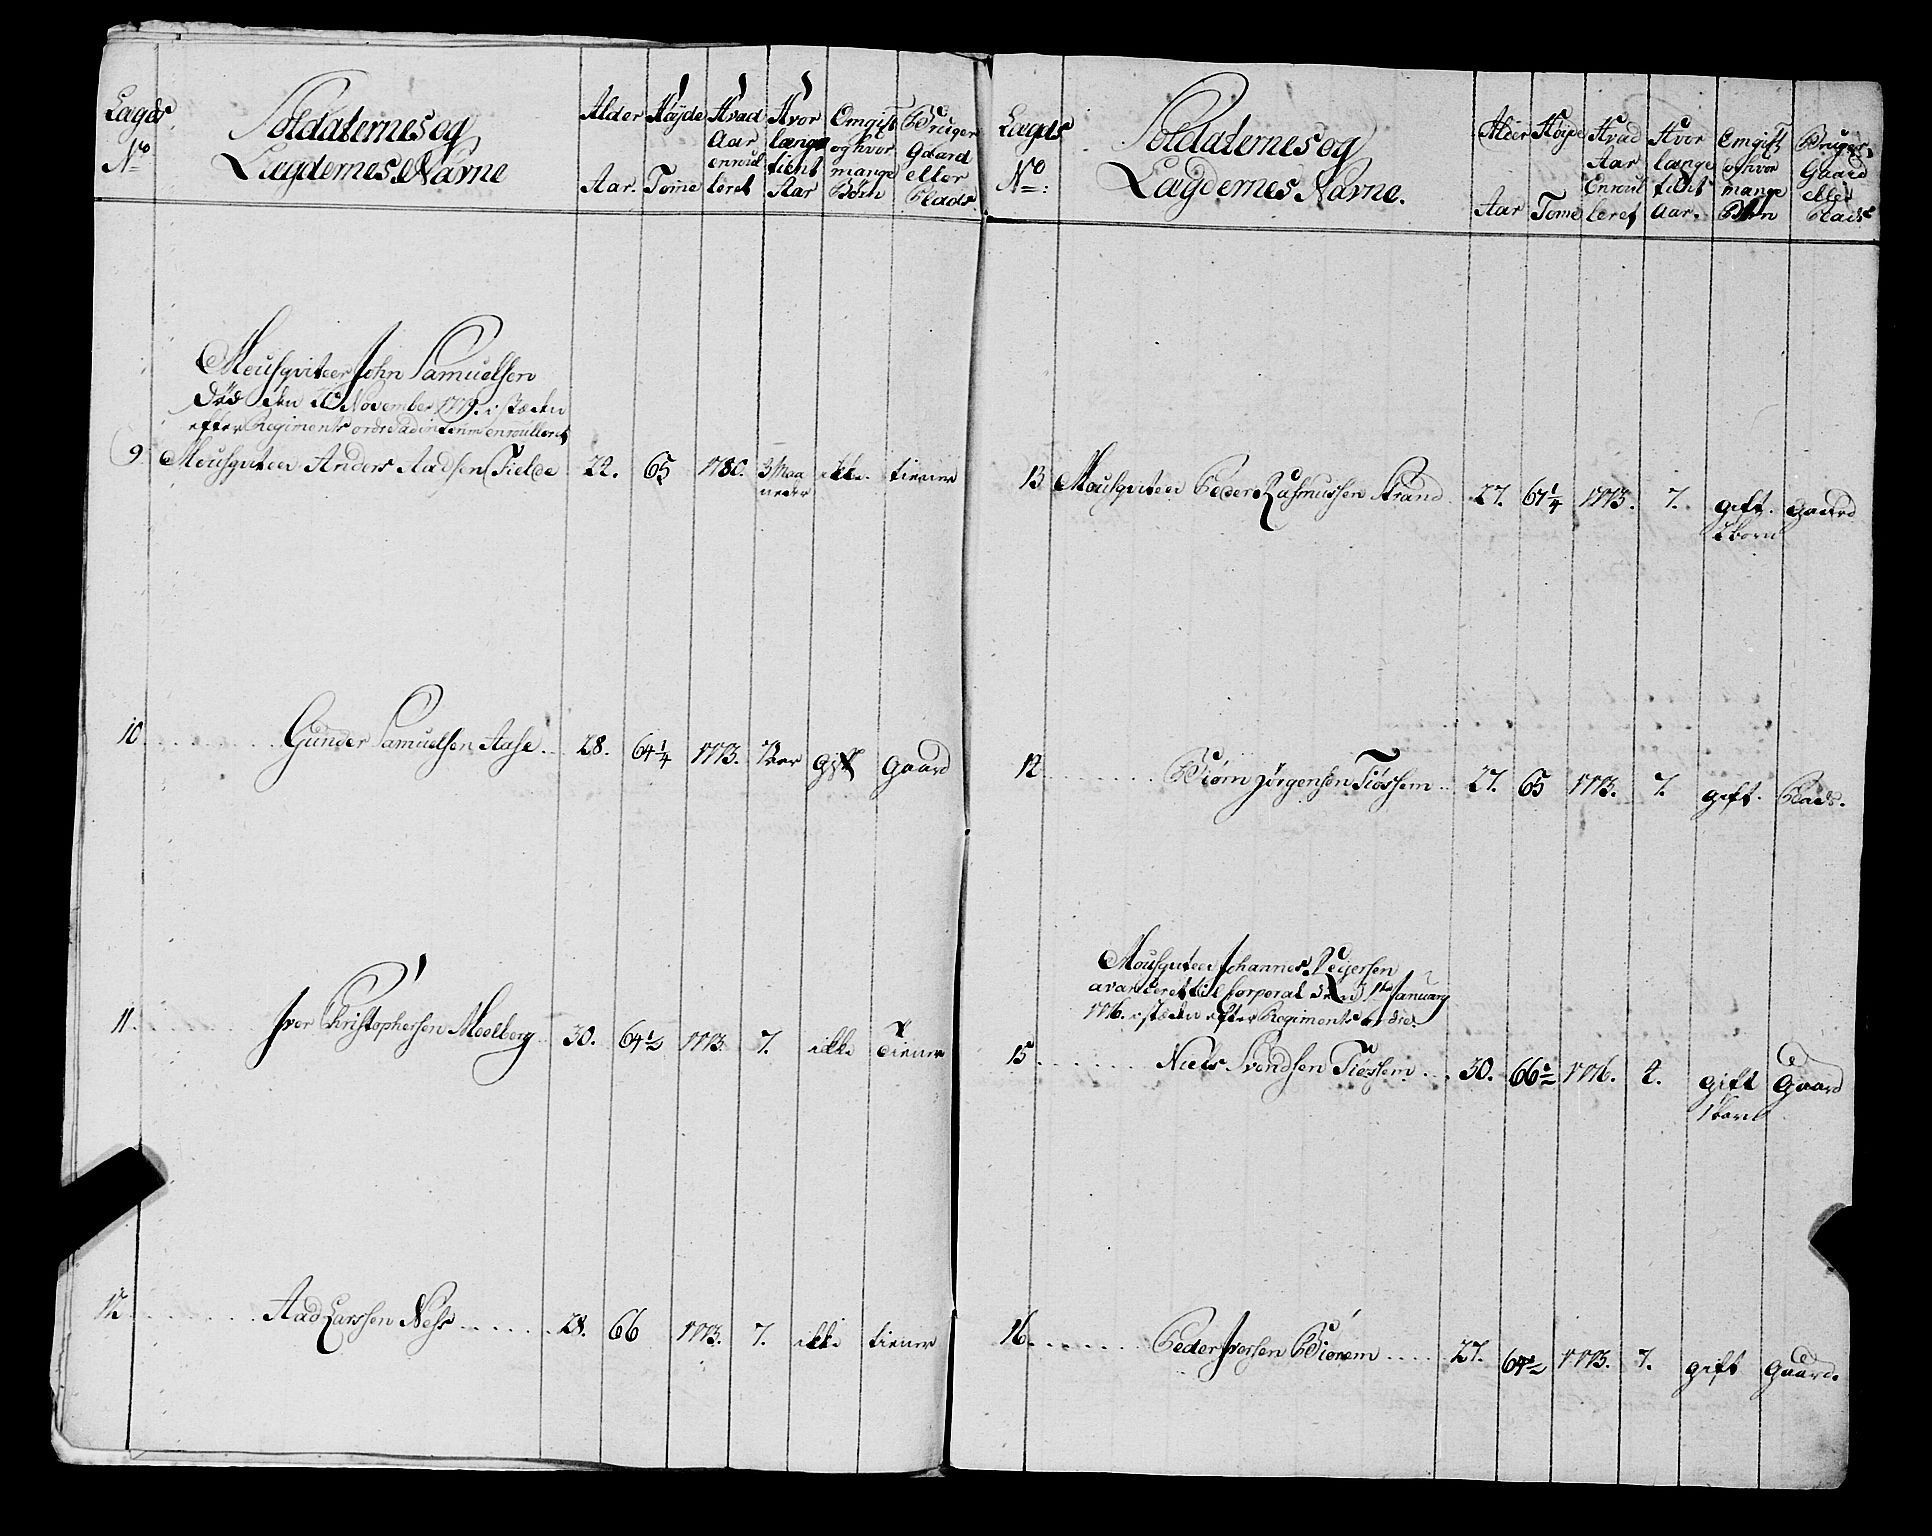 Lægds No
Soldaternes og Lægdernes Navne
Alder Aar.
Høyde Tomme
Hvad Aar enroulleret
Hvor længe tient Aar
Om gift og hvor mange Børn
Bruger Gaard eller Plads.
Mousqviteer John Samuelsen
Død den 20 November 1779. i stæden
efter Regiments ordre ad interim enroulleret
9. Mousqviteer Anders Aadsen Fielde 22. 65 1780. 3 Maaneder ikke. tiener
10. Gunder Samuelsen Aase 28. 64 1/4 1773. 7 Aar gift gaard
11. Iver Christophersen Meelberg 30. 64 1/2 1773. 7. ikke tiener
12. Aad Larssen Ness 28. 66 1773. 7. ikke tiener
Lægds No:
Soldaternes og Lægdernes Navne.
Alder Aar
Høyde Tomme
Hvad Aar Enroulleret
Hvor længe tient Aar.
Om gift og hvor mange Børn
Bruger Gaard eller Plads
13 Mousqviteer Peder Rasmussen Strand 27. 67 1/4 1773. 7. gift. gaard
born
14 Biørn Jørgensen Tiøssem 27. 65 1773. 7. gift. Plads.
Mousqviteer Johannes
avanceret til Corporal den 1 January
1776. i stæden efter Regiments Ordre.
15 Niels Svendsen Tiøssem 30. 66 1/2 1776. 4. gift Gaard
1 barn
16. Peder Iversen Biørem 27. 64 1/2 1773. 7. gift gaard.